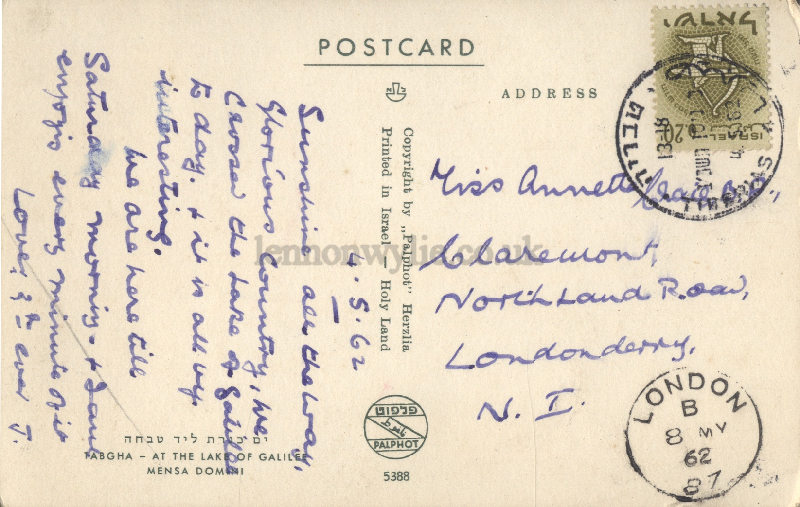 POSTCARD
ADDRESS
4.5.62
Sunshine all the way,
Glorious Country, we
Crossed the Lake of Galilee
to day. & it is all very
interesting.
We are here till
Saturday morning. &
enjoys every minute of it
Love, as ever J.
Copyright by „Palphot" Herzlia
Printed in Israel — Holy Land
Miss Annette
Claremont,
Northland Road,
Londonderry,
N. I.
ישראל
ISRAEL
0.20
13-18
4.5.62
LONDON
B
8 MY
62
87
פלפוט
PALPHOT
5388
ים כנרת ליד טבחה
TABGHA – AT THE LAKE OF GALILEE
MENSA DOMINI
lennonwylie.co.uk